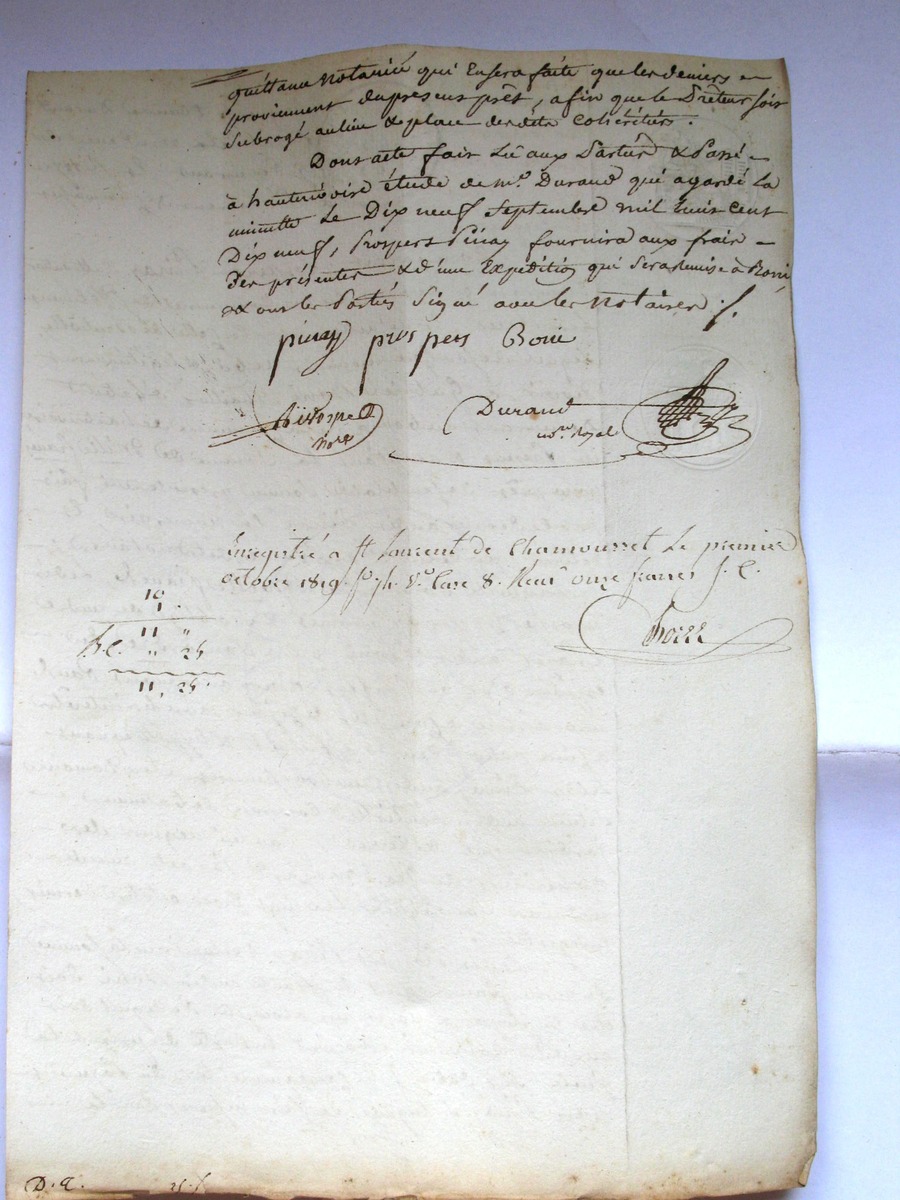 quittance notariée qui En sera faite que les deniers en
proviennent du présent prêt, afin que le Prêteur soit
subrogé au lieu & place desdits cohéritiers.
Dont acte fait Lû aux Parties & Passé
à hauterivoire étude de Me. Durand qui a gardé La
minutte Le Dix neuf Septembre mil huit cent
Dix neuf, Prospers Pinay fournira aux frais
Des présentes & d'une Expedition qui sera remise à Boni
& ont les Parties Signé avec les Notaires ./.
pinay prospers Boni
Durand
nore Royal
Nore
Enregistré a St Laurent de Chamousset Le premier
octobre 1819 fo. Vo. Case 8. Reçu onze francs
10
1.
11 "
" 25
11, 25.
D. Q.